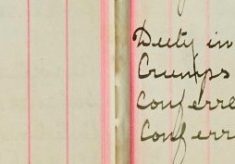 Duty in
Crumps
Conferre
Conferr